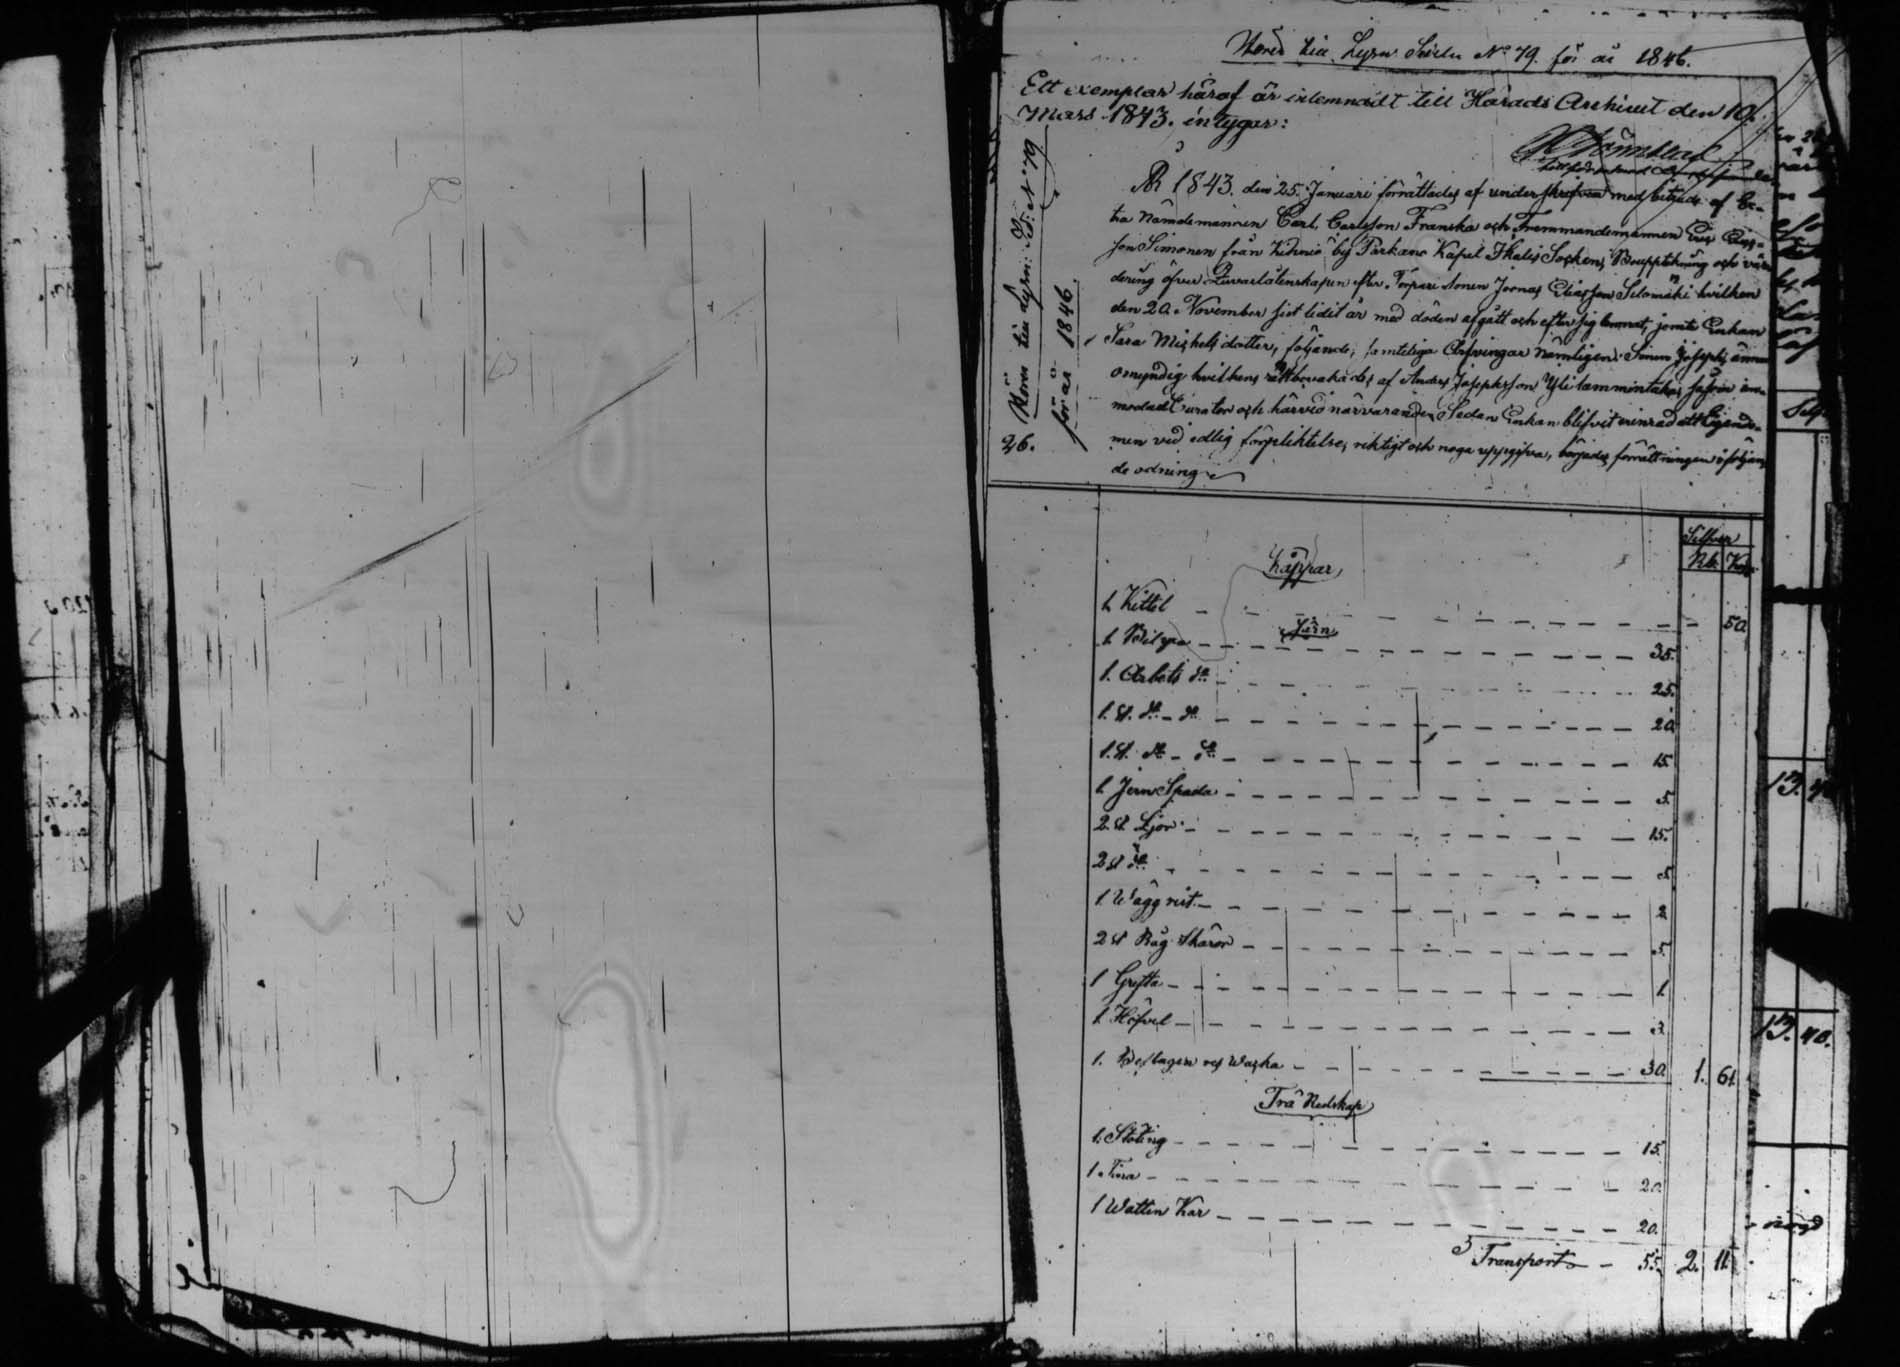 Hörer till Lysn. Saken No 79. för år 1846.
Ett exemplar häraf är inlemnadt till Härads Archivet den 10.
Mars 1843. intygar:
Hörer till Lysn: S: No 79
för år 1846.
26.
År 1843. den 25. Januari förrättades af underskrifven med biträde af Ex-
tra Nämdemannen Carl Carlsson Franska och Fremmandemannen Eric Elias-
son Simonen från Kihniö by Parkano Kapel Ikalis Socken, Bouppteckning och vär-
dering öfver Qvarlåtenskapen efter Torpare Sonen Joonas Eliasson Selomäki hvilken
den 20. November sistlidit år med döden afgått och efter sig lemnat, jemte Enkan
Sara Michelsdotter, följande, samteliga Arfvingar nämligen: Sonen Joseph, ännu
omyndig hvilkens rätt bevakades af Anders Josephsson Ylilammintaka, såsom an-
modad Curator och härvid närvarande, Sedan Enkan blifvit erinrad att Egendo-
men vid edlig förpliktelse, riktigt och noga uppgifva, börjades förrättningen i följan-
de ordning
Silfver
Rb. Kop.
Koppar
1. Kittel 50.
Jern
1 Bilyxa 35.
1. Arbets do 25.
1. st. do do 20
1. st. do do 15
1 Jern Spada 5.
2. st Ljor 15.
2 st do 5
1. Wägg 2
2 st Råg Skäror 5.
1 Grefta 1.
1. Höfvel 3.
1. Beslagen 30. 1. 61.
Trä Redskap
1. Stöting 15.
1. Tina 20.
1 Watten Kar 20.
Transport 55. 2. 11.
13. 40.